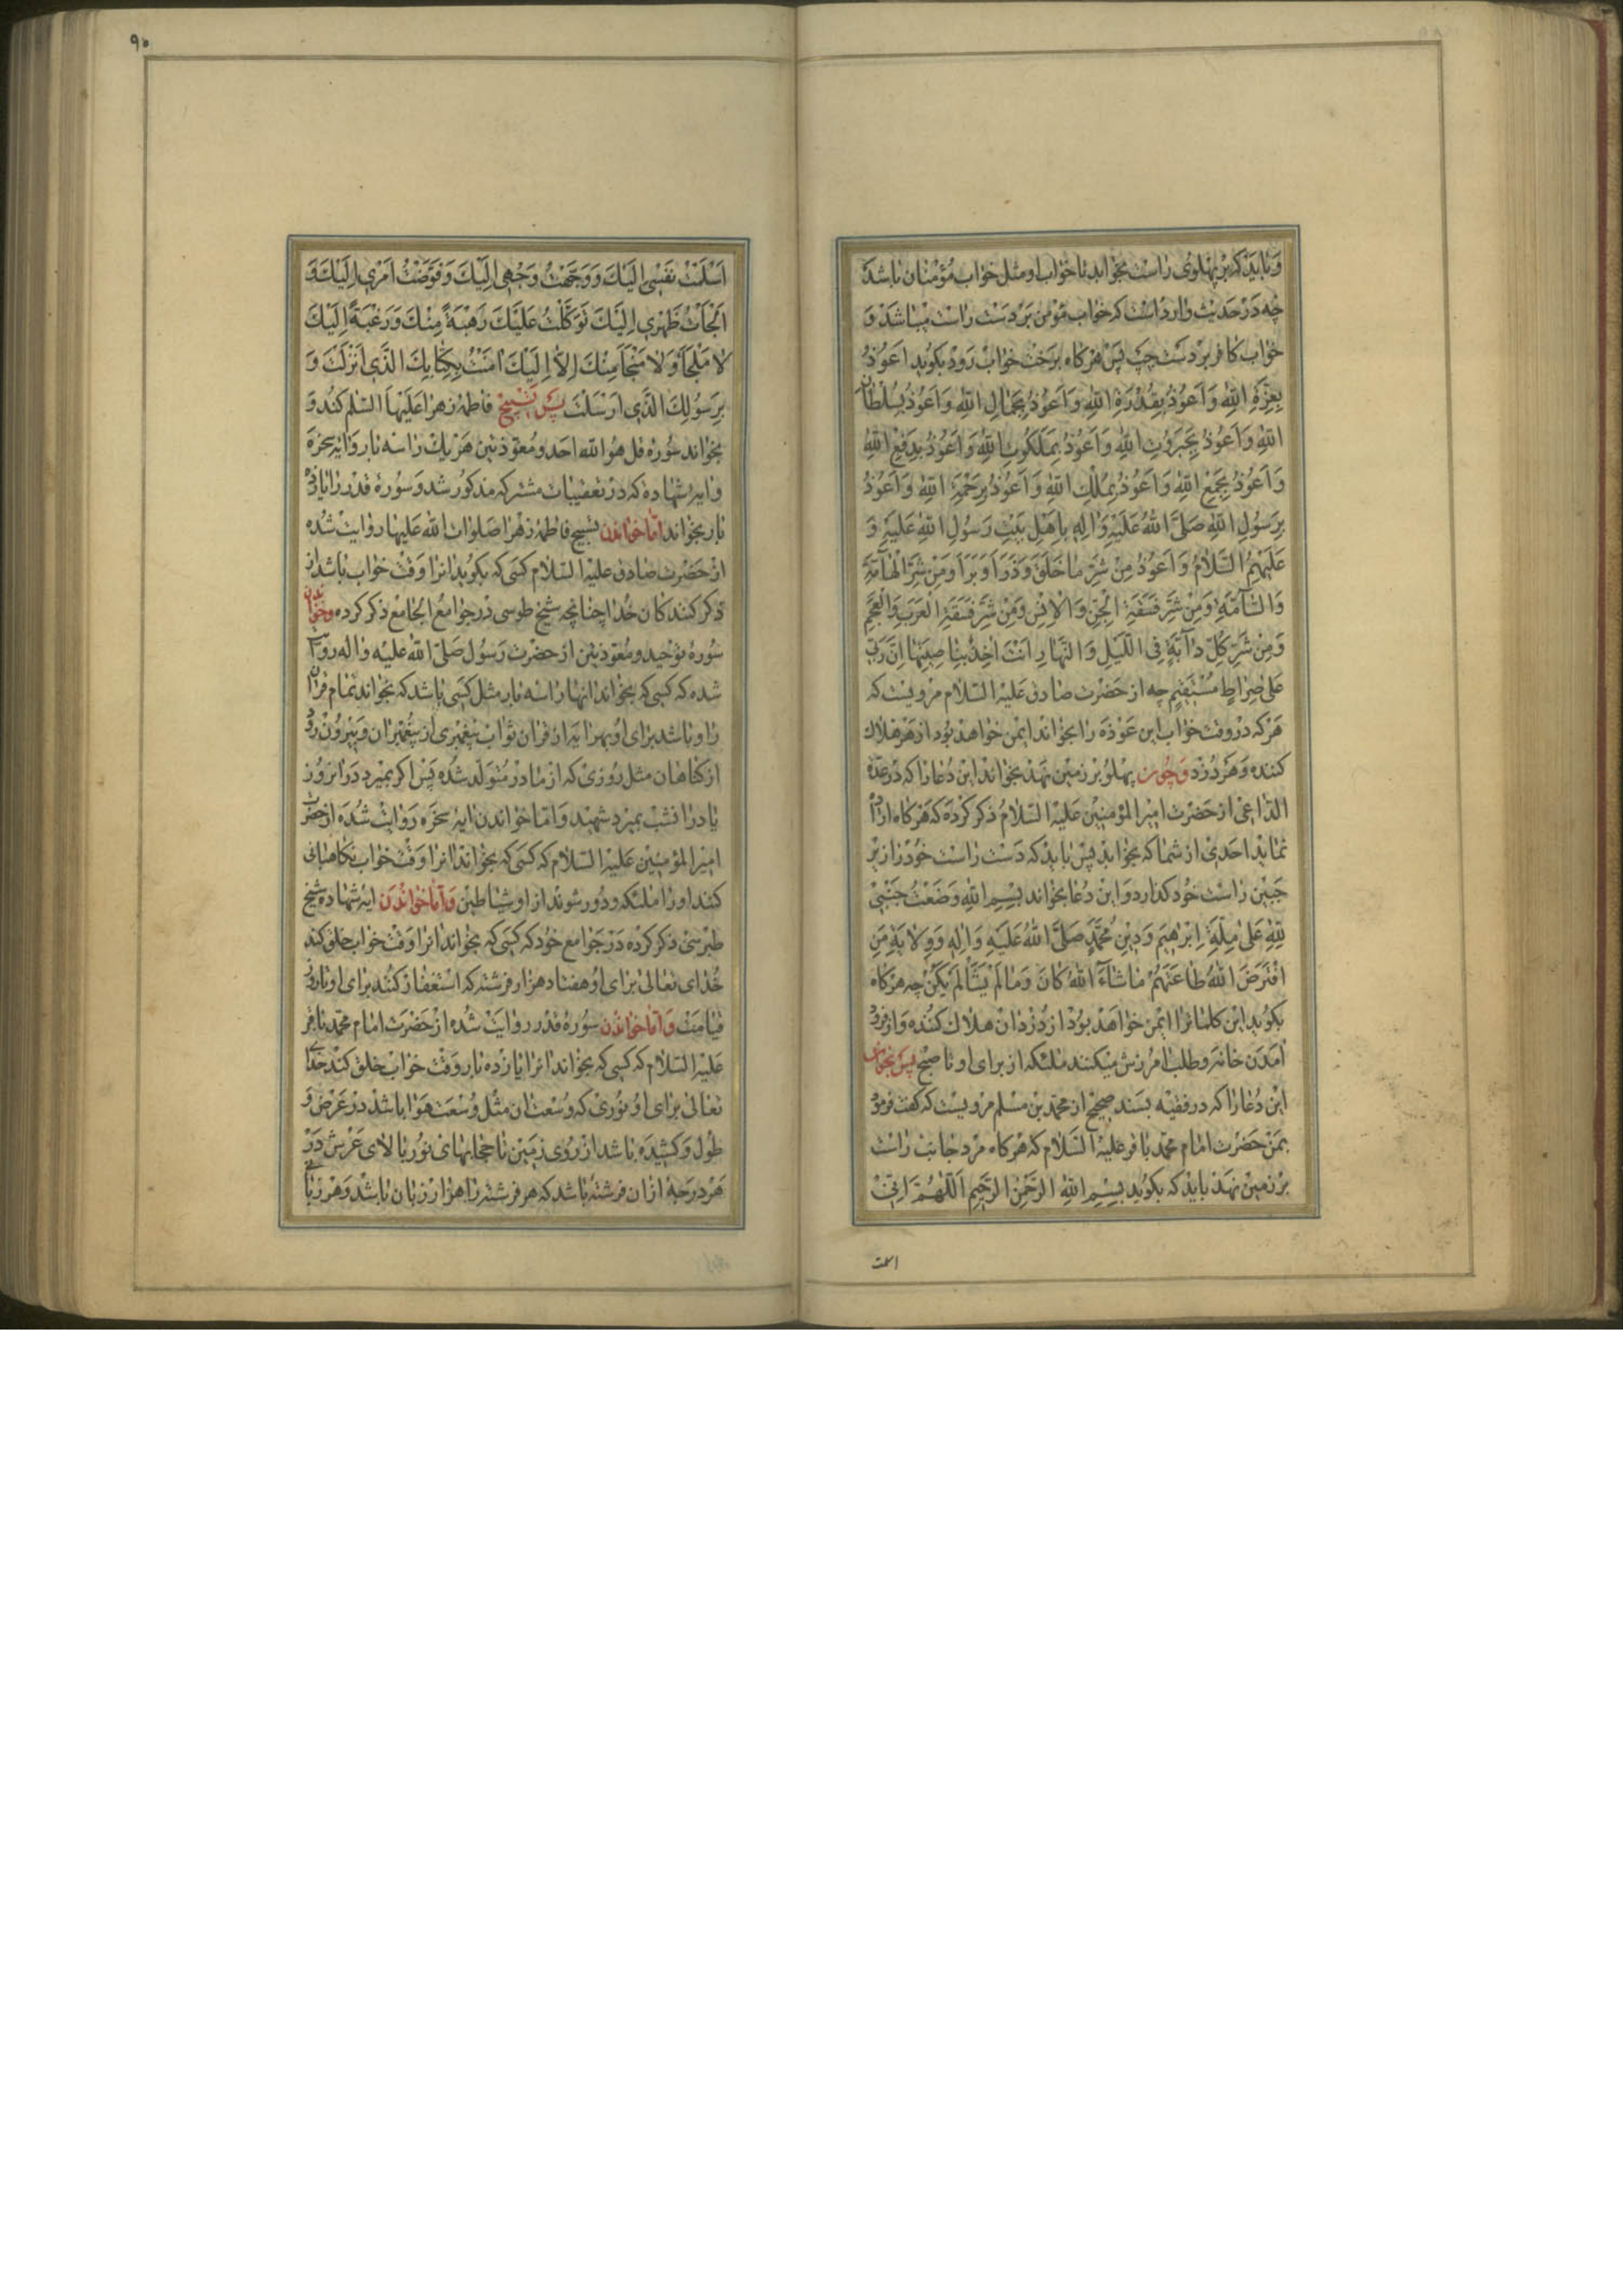 وَبایَد که بَر پَهلوی راست بخوابد تا خواب او مثل خواب مُؤمنان باشد
چه دَر حَدیث وارد است که خواب مؤمن بَر دَست راست میباشد وَ
خواب کافر بر دست چپ پَس هر کاه برَخت خواب رَوَد بکوید اَعُوذُ
بِعِزَّةِ اللهِ وَاَعُوذُ بِقُدْرَةِ اللهِ وَاَعُوذُ بِجَمٰالِ اللهِ وَاَعُوذُ بِسُلْطٰانِ
اللهِ وَاَعُوذُ بِجَبَرُوتِ اللهِ وَاَعُوذُ بِمَلَكُوتِ اللهِ وَاَعُوذُ بِدَفْعِ اللهِ
وَاَعُوذُ بِجَمْعِ اللهِ وَاَعُوذُ بِمُلْكِ اللهِ وَاَعُوذُ بِرَحْمَةِ اللهِ وَاَعُوذُ
بِرَسُولِ اللهِ صَلَّى اللهُ عَلَيْهِ وَاٰلِهِ بِاَهْلِ بَيْتِ رَسُولِ اللهِ عَلَيْهِ وَ
عَلَيْهِمُ السَّلاٰمُ وَاَعُوذُ مِنْ شَرِّ مٰا خَلَقَ وَذَرَأَ وَبَرَأَ وَمِنْ شَرِّ الْهٰامَّةِ
وَالسّٰامَّةِ وَمِنْ شَرِّ فَسَقَةِ الْجِنِّ وَالْاِنْسِ وَمِنْ شَرِّ فَسَقَةِ الْعَرَبِ وَالْعَجَمِ
وَمِنْ شَرِّ كُلِّ دٰابَّةٍ فِى اللَّيْلِ وَالنَّهٰارِ اَنْتَ اٰخِذٌ بِنٰاصِيَتِهٰا اِنَّ رَبّى
عَلىٰ صِرٰاطٍ مُسْتَقيمٍ چه از حَضرَت صادق عَلَیه السّلام مرویست که
هَر که در وقت خواب این عَوذَه را بخواند ایمن خواهد بُود از هَر هلاک
کننده وَ هَر دُزد وَ چُون پهلُو بر زمین نَهد بخواند این دُعا را که در عدّة
الدّاعی از حَضرت امیر المؤمنین عَلیه السّلامُ ذکر کرده که هَر کاه اراده
نماید اَحَدی از شما که بخوابد پس باید که دَست راست خود را زیر
جَبین راست خود کذارد وَ این دُعا بخواند بِسْمِ اللهِ وَضَعْتُ جَنْبى
لِلّٰهِ عَلىٰ مِلَّةِ اِبْرٰهيمَ وَدينِ مُحَمَّدٍ صَلَّى اللهُ عَلَيْهِ وَاٰلِهِ وَوِلاٰيَةِ مَنِ
افْتَرَضَ اللهُ طٰاعَتَهُمْ مٰا شٰاءَ اللهُ كٰانَ وَمٰا لَمْ يَشَأْ لَمْ يَكُنْ چه هر کاه
بکوید این کلمات را ایمن خواهَد بود از دُزدان هلاک کننده وَ از فرود
آمَدَن خانه و طلب آمرزش میکنند ملئکه از برای او تا صبح پس بخواند
این دُعا را که در فقیه بسند صحیح از محمّد بن مسلم مرویست که کفت فرمود
بمَن حَضرت امام محمّد باقر علیه السّلام که هر کاه مرد جانب راست
بر زمین نهد باید که بکوید بِسْمِ اللهِ الرَّحْمٰنِ الرَّحيمِ اَللّٰهُمَّ اِنّى
اسلمت
٩٥
اَسْلَمْتُ نَفْسى اِلَيْكَ وَوَجَّهْتُ وَجْهى اِلَيْكَ وَفَوَّضْتُ اَمْرى اِلَيْكَ وَ
اَلْجَأْتُ ظَهْرى اِلَيْكَ تَوَكَّلْتُ عَلَيْكَ رَهْبَةً مِنْكَ وَرَغْبَةً اِلَيْكَ
لاٰ مَلْجَأَ وَلاٰ مَنْجَأَ مِنْكَ اِلاّٰ اِلَيْكَ اٰمَنْتُ بِكِتٰابِكَ الَّذى اَنْزَلْتَ وَ
بِرَسُولِكَ الَّذى اَرْسَلْتَ پس تسبیح فاطمهٔ زهرا عَلَیهَا السّلم کند و
بخواند سُورهٔ قل هُوَ الله احد و مُعوّذتین هَر یک را سه بار و آیهٔ سخره
و آیهٔ شهاده که در تعقیبات مشترکه مذکور شد و سُورهٔ قدر را یازده
بار بخواند امّا خواندن تسبیح فاطمهٔ زهرا صلوات الله علیها روایت شُده
از حَضرت صادق علیه السّلام کسی که بکوید انرا وَقت خواب باشد از
ذکر کنندکان خُدا چنانچه شیخ طوسی در جوامع الجامع ذکر کرده و خواندن
سُورهٔ توحید و مُعوذتین از حضرت رَسُول صَلّی الله علیه و اله روایت
شده که کسی که بخواند انها را سه بار مثل کسی باشد که بخواند تمام قران
را و باشد برای او بهر آیه از قران ثواب پیغمبری از پیغمبران وَ بیرون رود
از کناهان مثل روزی که از مادر متولّد شُده پس اکر بمیرد در ان روز
یا در ان شب بمیرد شهید وَ امّا خواندن آیهٔ سخره روایت شُده از حضرت
امیر المؤمنین عَلیه السّلام که کسی که بخواند انرا وَقت خواب نکاهبانی
کنند او را ملئکه و دُور شوند از او شیاطین وَ امّا خواندن آیه شهاده شیخ
طبرسی ذکر کرده دَر جَوامع خود که کسی که بخواند انرا وَقت خواب خلق کند
خُدای تعالی برای او هفتاد هزار فرشته که استغفار کنند برای او تا روز
قیامت وَ امّا خواندن سُورهٔ قدر روایت شده از حَضرَت امام محمّد باقر
عَلیه السّلام که کسی که بخواند انرا یازده بار وَقت خواب خلق کند خدای
تعالی برای او نُوری که وُسعت ان مثل وُسعَت هَوا باشد در عَرض و
طول وَ کشیده باشد از رُوی زَمین تا حجابهای نور بالای عَرش دَر
هَر درجهٔ از ان فرشته باشد که هر فرشته را هزار زبان باشد وَ هر زبانی